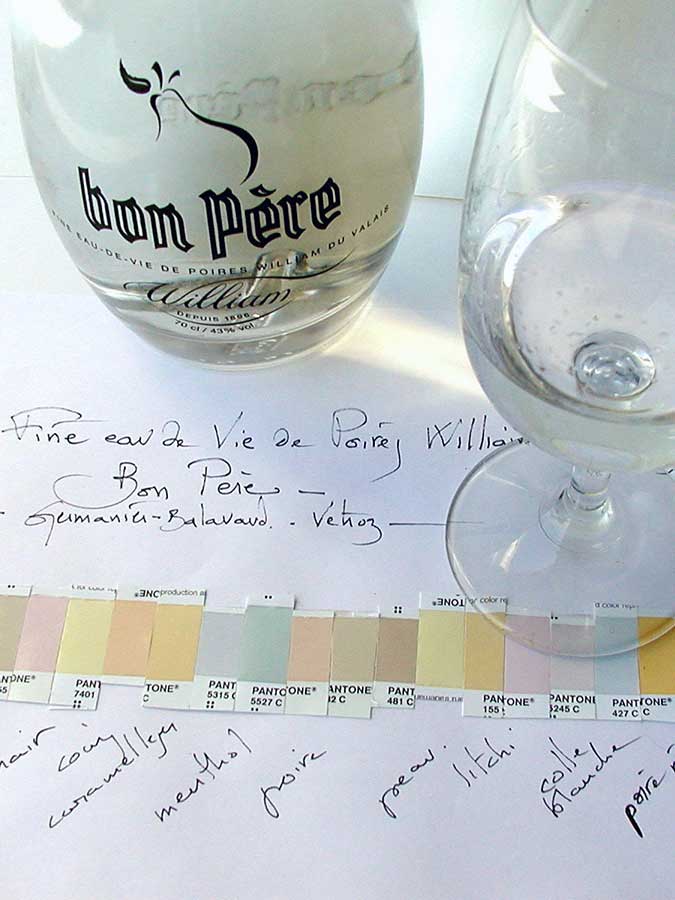 bon père
FINE EAU-DE-VIE DE POIRES WILLIAM DU VALAIS
William
DEPUIS 1896
70 cl / 43% vol
Fine eau de Vie de Poires William
Bon Père
Germanier-Balavaud. - Vetroz
production
color
color
PANTONE®
PANT
7401
TONE®
PANT
5315 C
PANTO
5527 C
ONE®
ANTONE®
2 C
PANT
481 C
PAN
155
ONE®
ANTONE®
5245 C
PANTONE®
427 C
PANTO
C
coing
caramelleux
menthol
poire
peau
litchi
colle
blanche
poire